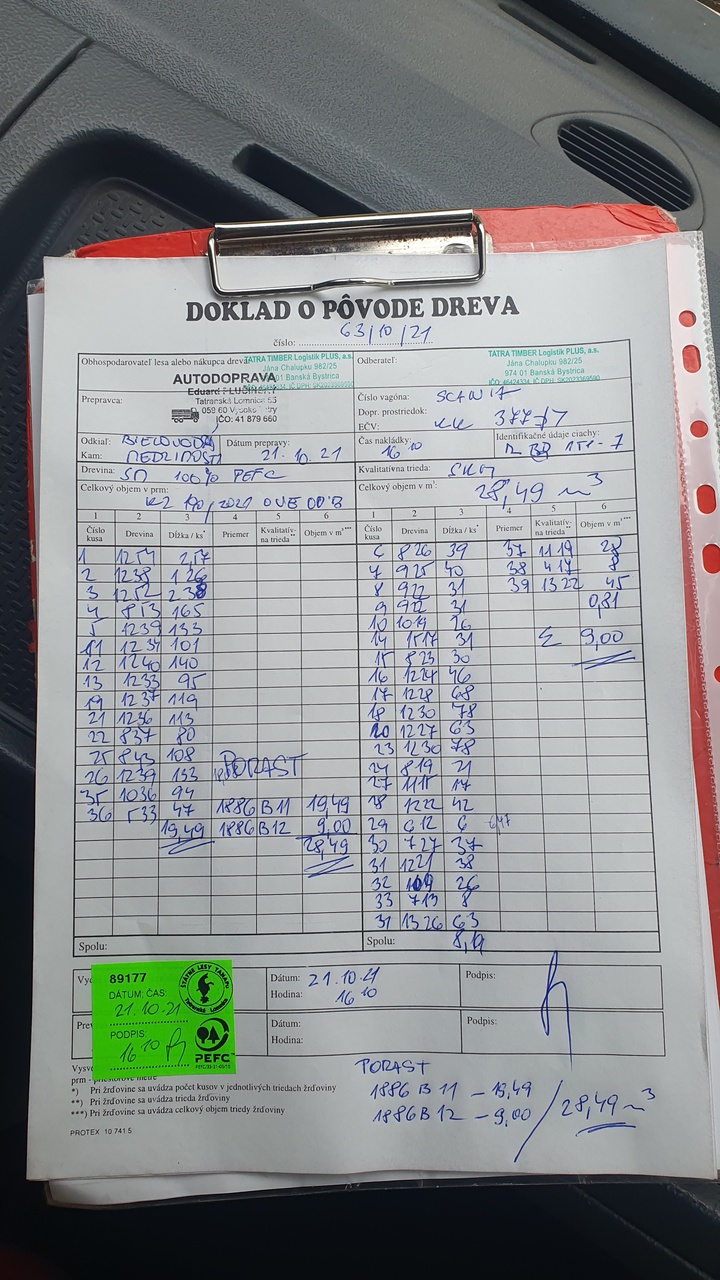 DOKLAD O PÔVODE DREVA
číslo: 63/10/21
Obhospodarovateľ lesa alebo nákupca dreva:
TATRA TIMBER Logistik PLUS, a.s.
Jána Chalupku 982/25
974 01 Banská Bystrica
AUTODOPRAVA
Eduard
Tatranská Lomnica
059 60 Vysoké Tatry
IČO: 41 879 660
Odberateľ:
TATRA TIMBER Logistik PLUS, a.s.
Jána Chalupku 982/25
974 01 Banská Bystrica
Prepravca:
Číslo vagóna:
Dopr. prostriedok:
EČV: KK
Odkiaľ: BIELOVODSKÁ
Kam:
Dátum prepravy: 21.10.21
Čas nakládky: 16 10
Identifikačné údaje ciachy:
Drevina: SM 100% PEFC
Kvalitatívna trieda:
Celkový objem v prm:
Celkový objem v m³: 28,49 m³
1 2 3 4 5 6
Číslo kusa Drevina Dĺžka / ks* Priemer Kvalitatívna trieda** Objem v m³***
1 2 3 4 5 6
Číslo kusa Drevina Dĺžka / ks* Priemer Kvalitatívna trieda** Objem v m³***
1 1254
2 1238 126
3 1252
4 853 165
5 1239 133
11 1234 101
12 1240 140
13 1233 95
19 1237 119
21 1236 113
22 837 80
25 843 108
26 1239 133 PORAST
35 1036 94
36 533 47 1886 B11 19,49
19,49 1886 B12 9,00
28,49
6 826 39 37 1119
7 925 40 38 417 8
8 922 31 39 1322 45
9 922 31 0,81
10 1019 26
14 1517 31 Σ 9,00
15 823 30
16 1224 46
17 1228 68
18 1230 78
20 1227 63
23 1230 78
24 819 21
27 1115 17
28 1222 42
29 612 6
30 727 37
31 1221 38
32 26
33 713 8
34 1326 63
Spolu:
Spolu: 8,19
89177
DÁTUM: ČAS:
21.10.21
PODPIS:
16 10
ŠTÁTNE LESY TANAPU
Tatranská Lomnica
PEFC
Dátum: 21.10.21
Hodina: 16 10
Podpis:
Dátum:
Hodina:
Podpis:
prm - priestorové metre
*) Pri žrďovine sa uvádza počet kusov v jednotlivých triedach žrďoviny
**) Pri žrďovine sa uvádza trieda žrďoviny
***) Pri žrďovine sa uvádza celkový objem triedy žrďoviny
PROTEX 10 741 5
PORAST
1886 B 11 – 19,49
1886 B 12 – 9,00 / 28,49 m³